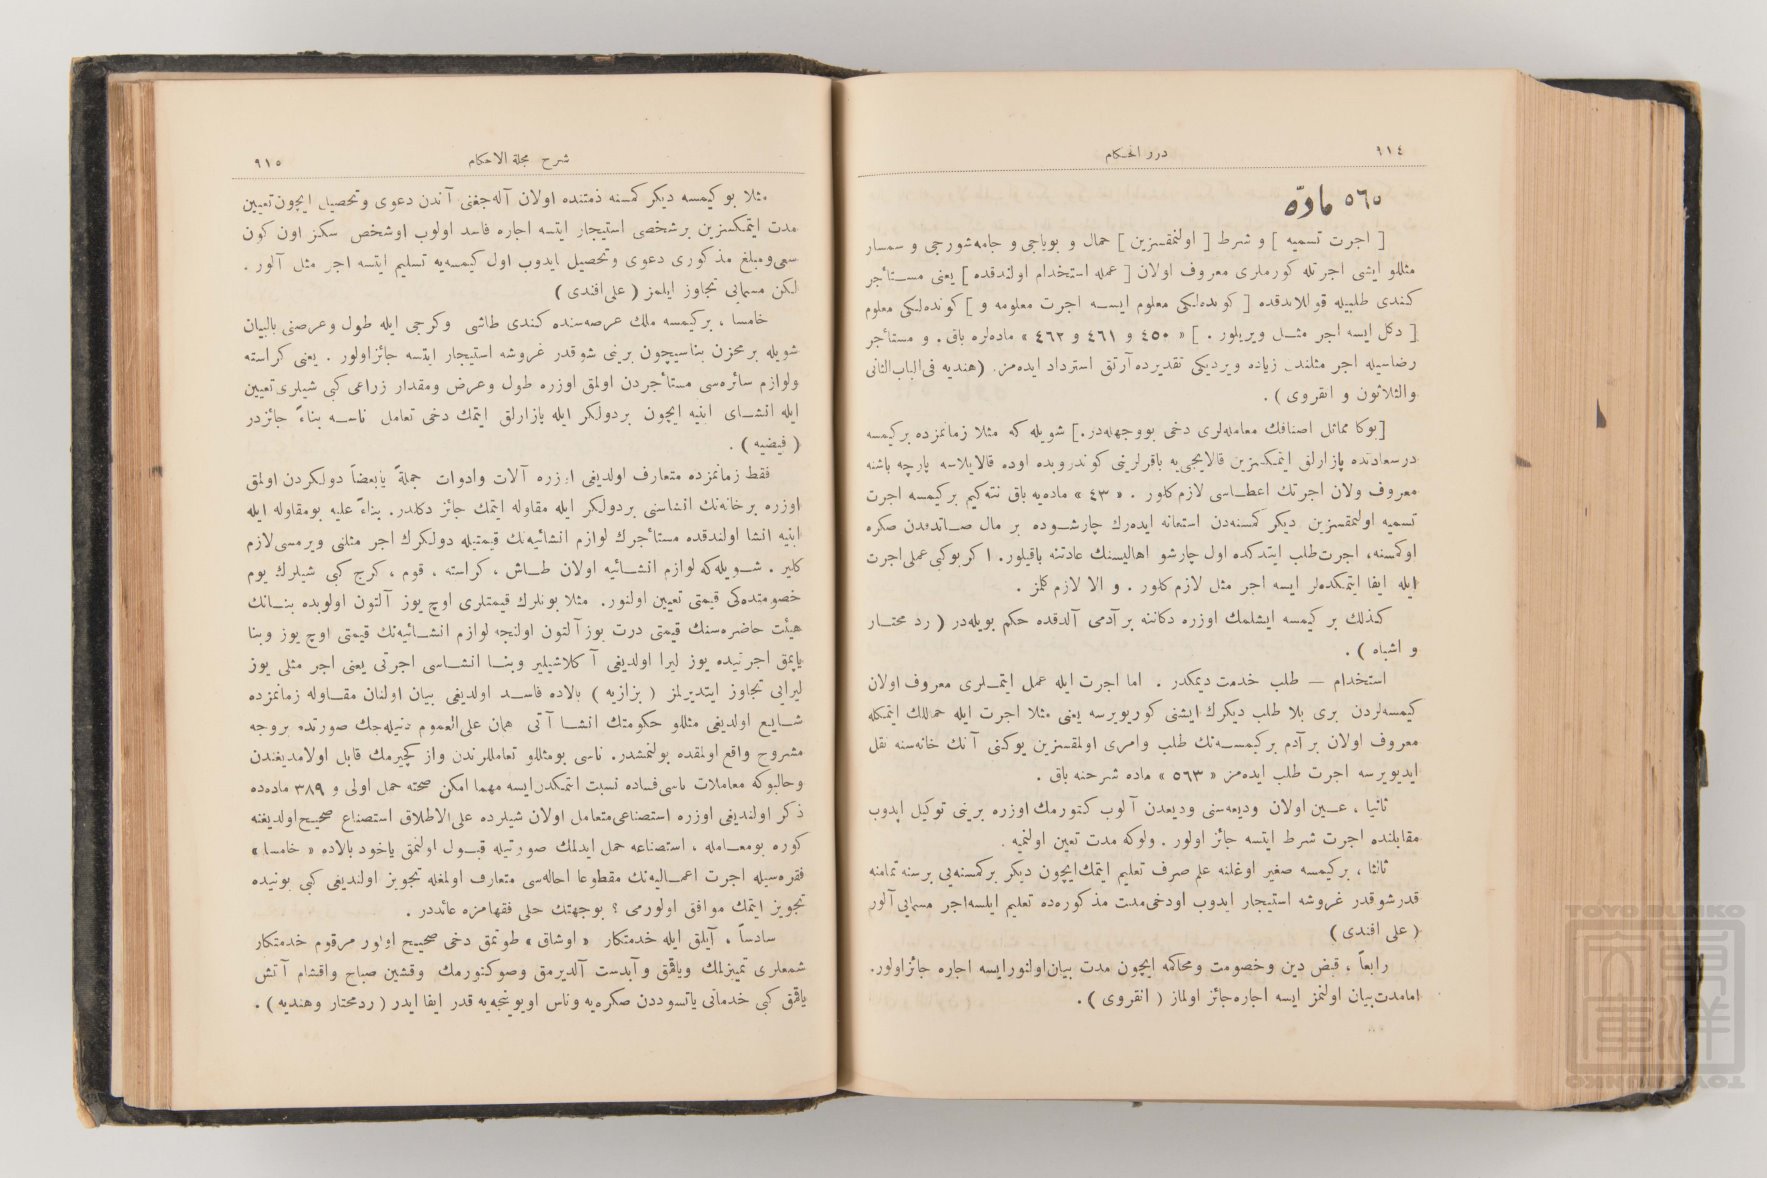 ٩١٤
درر الحکام
٥٦٠ مادّه
[ اجرت تسمیه ] و شرط [ اولنمقسزین ] حمال و بویاجی و جامه‌شورجی و سمسار
مثللو ایشی اجرتله کورملری معروف اولان [ عمله استخدام اولندقده ] یعنی مستأجر
کندی طلبیله قوللاندقده [ کونده‌لکی معلوم ایسه اجرت معلومه و ] کونده‌لکی معلوم
[ دکل ایسه اجر مثل ویریلور . ] « ٤٥٠ و ٤٦١ و ٤٦٢ » ماده‌لره باق . و مستأجر
رضاسیله اجر مثلندن زیاده ویردیکی تقدیرده آرتق استرداد ایده‌مز. (هندیه فی‌الباب‌الثانی
والثلاثون و انقروی ) .
[بوکا مماثل اصنافك معامله‌لری دخی بووجهله‌در.] شویله که مثلا زمانمزده برکیمسه
درسعادتده پازارلق ایتمکسزین قالایجی‌یه باقرلرینی کوندروبده اوده قالایلاسه پارچه باشنه
معروف ولان اجرتك اعطاسی لازم‌کلور . « ٤٣ » ماده‌یه باق نته‌کیم برکیمسه اجرت
تسمیه اولنمقسزین دیکر کمسنه‌دن استعانه ایده‌رك چارشوده بر مال صاتدقدن صکره
اوکمسنه، اجرت‌طلب ایتدکده اول چارشو اهالیسنك عادتنه باقیلور. اکر بوکبی عملی‌اجرت
ایله ایفا ایتمکده‌لر ایسه اجر مثل لازم‌کلور . و الا لازم کلمز .
کذلك بر کیمسه ایشلمك اوزره دکاننه بر آدمی آلدقده حکم بویله‌در ( رد محتار
و اشباه ) .
استخدام — طلب خدمت دیمکدر . اما اجرت ایله عمل ایتملری معروف اولان
کیمسه‌لردن بری بلا طلب دیکرك ایشنی کوریویرسه یعنی مثلا اجرت ایله حماللك ایتمکله
معروف اولان بر آدم برکیمسه‌نك طلب وامری اولمقسزین یوکنی آنك خانه‌سنه نقل
ایدیویرسه اجرت طلب ایده‌مز « ٥٦٣ » ماده شرحنه باق .
ثانیا ، عین اولان ودیعه‌سنی ودیعدن آلوب کتورمك اوزره برینی توکیل ایدوب
مقابلنده اجرت شرط ایتسه جائز اولور . ولوکه مدت تعین اولنمیه .
ثالثا ، برکیمسه صغیر اوغلنه علم صرف تعلیم ایتمك‌ایچون دیکر برکمسنه‌یی برسنه تمامنه
قدرشوقدر غروشه استیجار ایدوب اودخی‌مدت مذکوره‌ده تعلیم ایلسه‌اجر مسمایی‌آلور
( علی افندی )
رابعاً ، قبض دین وخصومت ومحاکمه ایچون مدت بیان‌اولنورایسه اجاره جائزاولور.
امامدت‌بیان اولنمز ایسه اجاره‌جائز اولماز ( انقروی ) .
٩١٥
شرح مجلة الاحکام
مثلا بو کیمسه دیکر کمسنه ذمتنده اولان آله‌جغنی آندن دعوی وتحصیل ایچون‌تعیین
مدت ایتمکسزین برشخصی استیجار ایتسه اجاره فاسد اولوب اوشخص سکز اون کون
سعی‌ومبلغ مذکوری دعوی وتحصیل ایدوب اول کیمسه‌یه تسلیم ایتسه اجر مثل آلور .
لکن مسمایی تجاوز ایلمز ( علی‌افندی )
خامسا ، برکیمسه ملك عرصه‌سنده کندی طاشی وکرجی ایله طول وعرضنی بالبیان
شویله برمخزن بناسیچون برینی شوقدر غروشه استیجار ایتسه جائزاولور . یعنی کراسته
ولوازم سائره‌سی مستأجردن اولمق اوزره طول وعرض ومقدار زراعی‌کبی شیلری‌تعیین
ایله انشای ابنیه ایچون بردولکر ایله پازارلق ایتمك دخی تعامل ناسه بناءً جائزدر
( فیضیه ) .
فقط زمانمزده متعارف اولدیغی اوزره آلات وادوات جملةً یابعضاً دولکردن اولمق
اوزره برخانه‌نك انشاسنی بردولکر ایله مقاوله ایتمك جائز دکلدر. بناءً علیه بومقاوله ایله
ابنیه انشا اولندقده مستأجرك لوازم انشائیه‌نك قیمتیله دولکرك اجر مثلنی ویرمسی‌لازم
کلیر . شویله‌که لوازم انشائیه اولان طاش ، کراسته ، قوم ، کرج کبی شیلرك یوم
خصومتده‌کی قیمتی تعیین اولنور. مثلا بونلرك قیمتلری اوچ یوز آلتون اولوبده بنانك
هیئت حاضره‌سنك قیمتی درت یوزآلتون اولنجه لوازم انشائیه‌نك قیمتی اوچ یوز وبنا
یاپمق اجرتیده یوز لیرا اولدیغی آکلاشیلیر وبنا انشاسی اجرتی یعنی اجر مثلی یوز
لیرایی تجاوز ایتدیریلمز ( بزازیه ) بالاده فاسد اولدیغی بیان اولنان مقاوله زمانمزده
شایع اولدیغی مثللو حکومتك انشا آتی همان علی‌العموم دنیله‌جك صورتده بروجه
مشروح واقع اولمقده بولنمشدر. ناسی بومثللو تعامللرندن واز کچیرمك قابل اولامدیغندن
وحالبوکه معاملات ناسی‌فساده نسبت ایتمکدن‌ایسه مهما امکن صحته حمل اولی و ٣٨٩ ماده‌ده
ذکر اولندیغی اوزره استصناعی‌متعامل اولان شیلرده علی‌الاطلاق استصناع صحیح‌اولدیغنه
کوره بومعامله ، استصناعه حمل ایدلمك صورتیله قبول اولنمق یاخود بالاده « خامسا »
فقره‌سیله اجرت اعمالیه‌نك مقطوعا احاله‌سی متعارف اولمغله تجویز اولندیغی کبی بونیده
تجویز ایتمك موافق اولورمی ؟ بوجهتك حلی فقهامزه عائددر .
سادساً ، آیلق ایله خدمتکار « اوشاق » طوتمق دخی صحیح اولور مرقوم خدمتکار
شمعلری تمیزلمك ویاقمق وآبدست آلدیرمق وصوکتورمك وقشین صباح واقشام آتش
یاقمق کبی خدماتی یاتسودن صکره‌یه وناس اویوینجه‌یه قدر ایفا ایدر ( ردمحتار وهندیه ) .
TOYO BUNKO